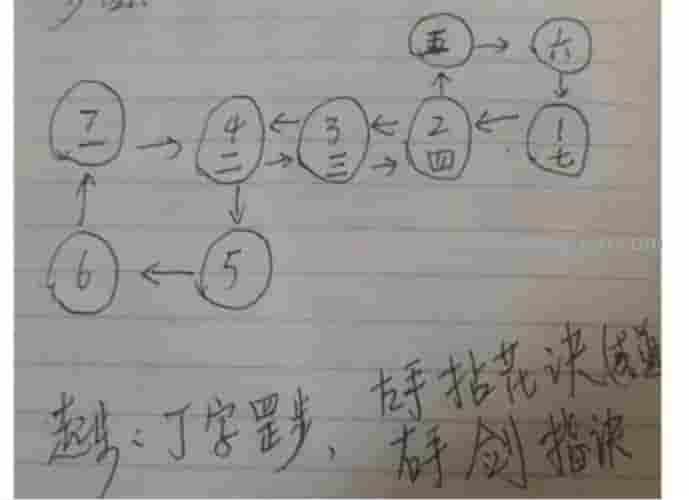 五 → 六
7 一 → 4 二 ← → 3 三 ← → 2 四 ← 1 七
6 ← 5
左手拈花诀
起步:丁字罡步,右手剑指诀